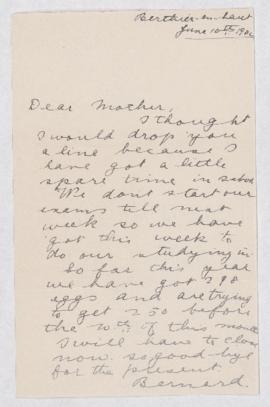 Berthier-en-haut
June 10th 1906
Dear Mother,
I thought
I would drop you
a line because I
have got a little
spare time in school
We dont start our
exams till next
week so we have
got this week to
do our studying in
So far this year
we have got
eggs and are trying
to get 250 before
the of this month
I will have to close
now. so good bye
for the present
Bernard.